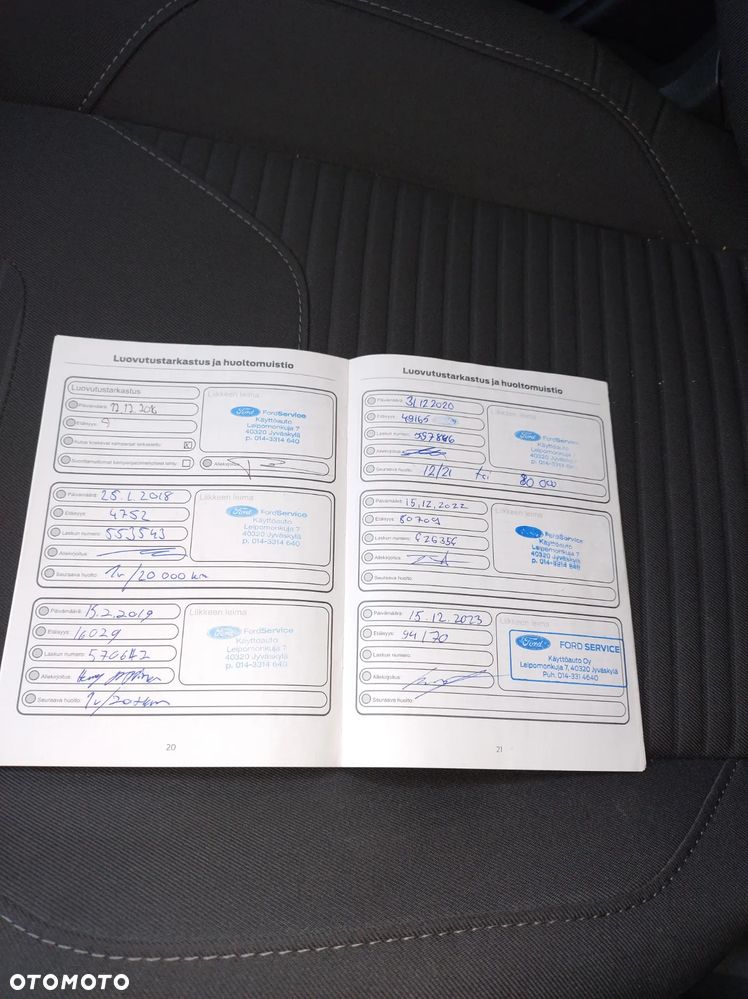 Luovutustarkastus ja huoltomuistio
Luovutustarkastus
Päivämäärä:
Etäisyys: 9
Auton koskevat kampanjat tarkastettu: X
Suorittamattomat kampanjatoimenpiteet tehty:
Allekirjoitus:
Liikkeen leima
Ford FordService
Käyttöauto
Leipomonkuja 7
40320 Jyväskylä
p. 014-3314 640
Päivämäärä: 25.1.2018
Etäisyys: 4752
Laskun numero: 553543
Allekirjoitus:
Seuraava huolto: 1v/20 000 km
Liikkeen leima
Ford FordService
Käyttöauto
Leipomonkuja 7
40320 Jyväskylä
p. 014-3314 640
Päivämäärä: 15.2.2019
Etäisyys: 16029
Laskun numero: 570642
Allekirjoitus:
Seuraava huolto: 1v/20tkm
Liikkeen leima
Ford FordService
Käyttöauto
Leipomonkuja 7
40320 Jyväskylä
p. 014-3314 640
20
Luovutustarkastus ja huoltomuistio
Päivämäärä: 31.12.2020
Etäisyys: 49165
Laskun numero: 597846
Allekirjoitus:
Seuraava huolto: 12/21 80 000
Liikkeen leima
Ford FordService
Käyttöauto
Leipomonkuja 7
40320 Jyväskylä
p. 014-3314 640
Päivämäärä: 15.12.2022
Etäisyys: 80709
Laskun numero: 626356
Allekirjoitus:
Seuraava huolto:
Liikkeen leima
Ford FordService
Käyttöauto
Leipomonkuja 7
40320 Jyväskylä
p. 014-3314 640
Päivämäärä: 15.12.2023
Etäisyys: 94170
Laskun numero:
Allekirjoitus:
Seuraava huolto:
Liikkeen leima
Ford FORD SERVICE
Käyttöauto Oy
Leipomonkuja 7, 40320 Jyväskylä
Puh. 014-331 4640
21
OTOMOTO